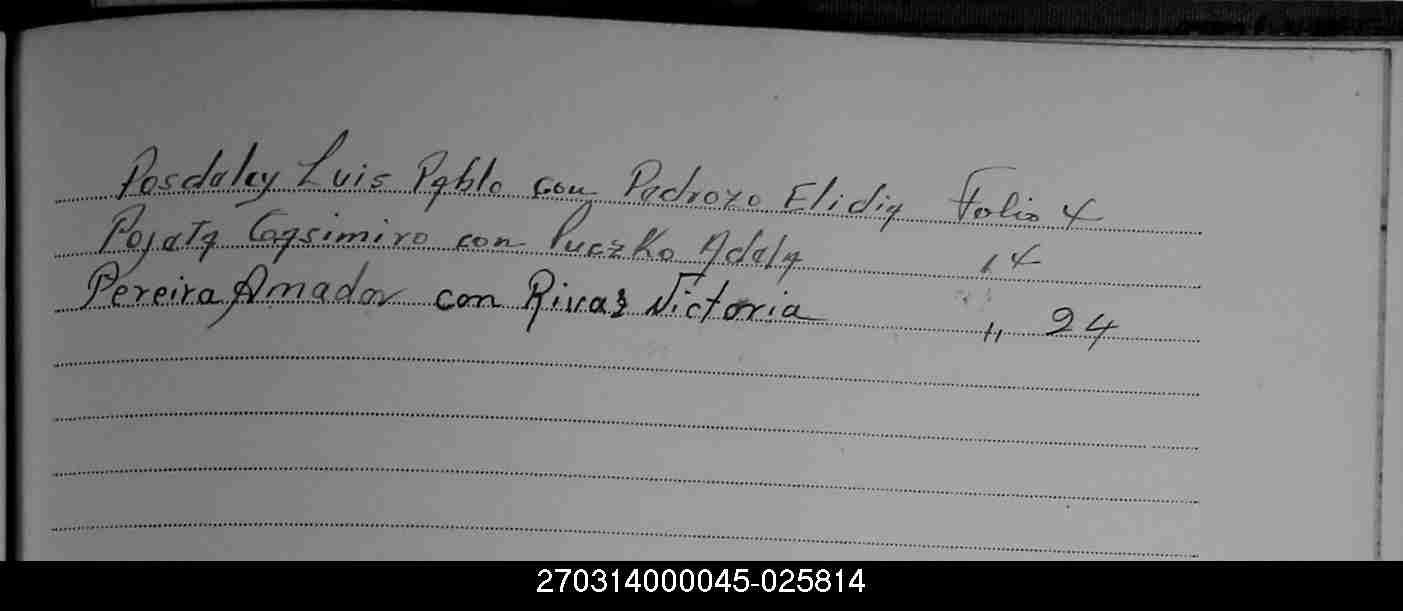 Posdaley Luis Pablo con Pedrozo Elidia Folio 4
Pojata Casimiro con Puczko Adela 14
Pereira Amador con Rivas Victoria " 24
270314000045-025814